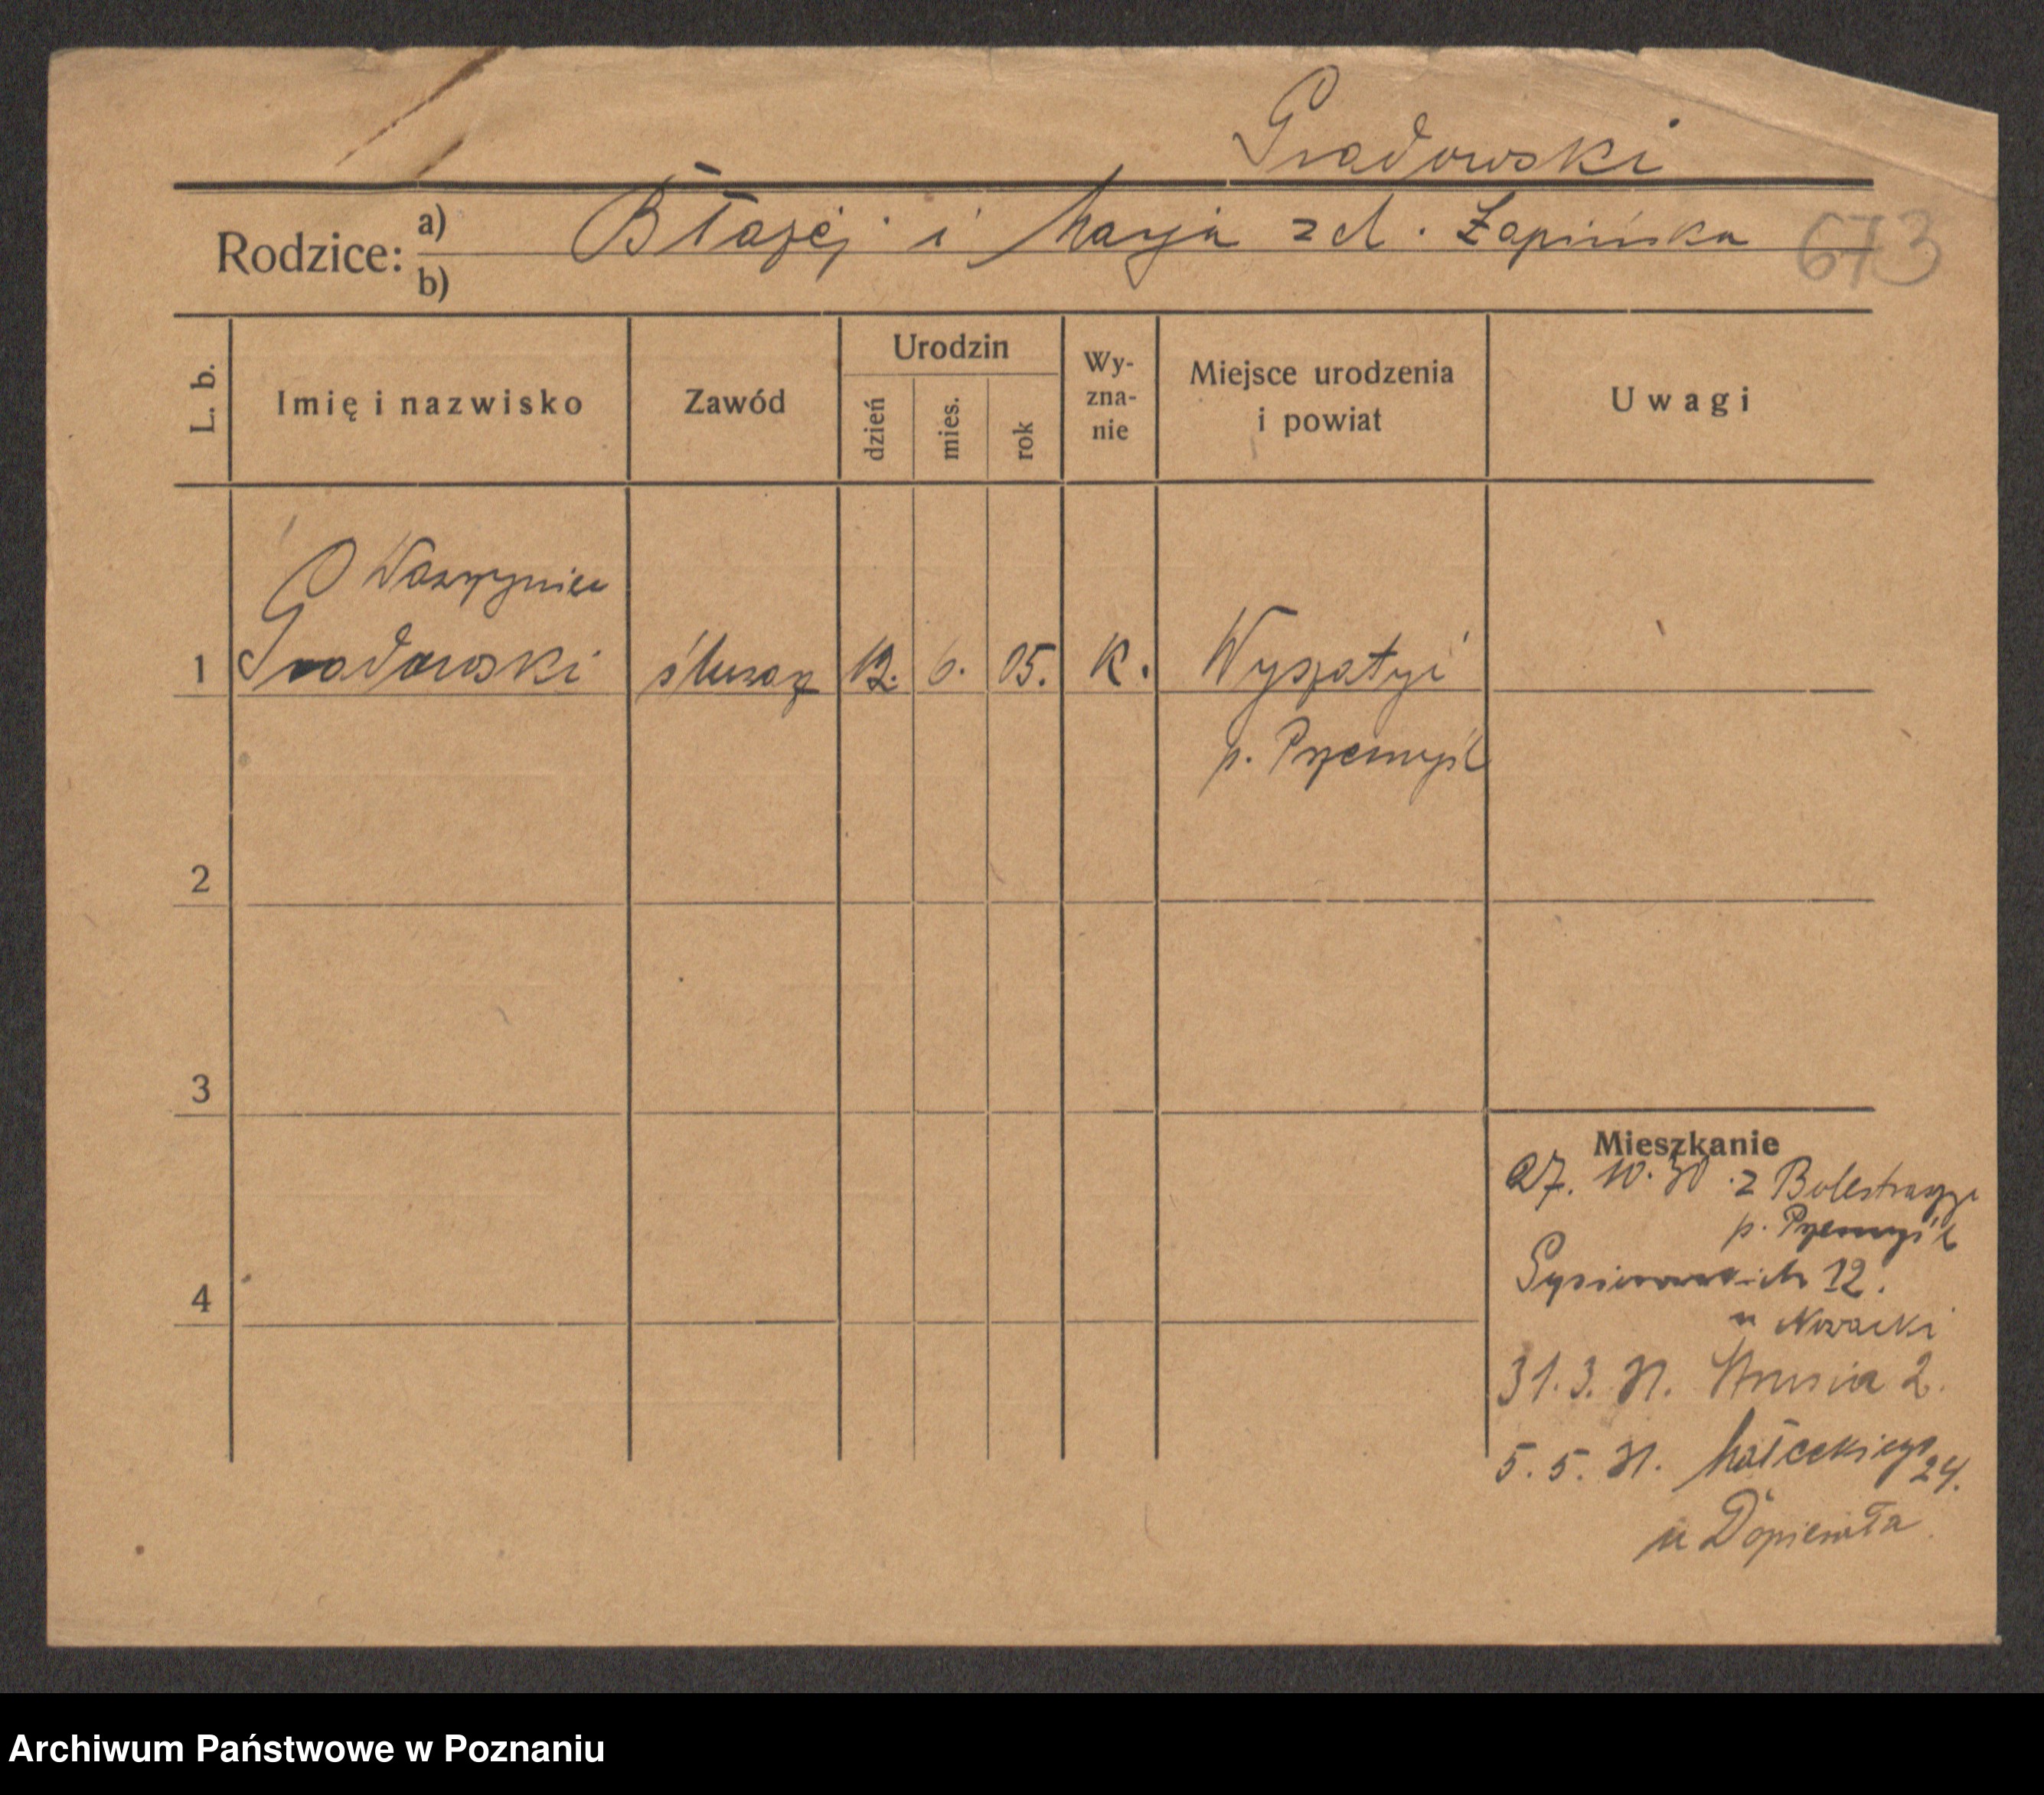 Gradowski
Rodzice: a) Błażej i Marja z d. Łapińska 673
b)
L. b.
Imię i nazwisko
Zawód
Urodzin
dzień
mies.
rok
Wy-
zna-
nie
Miejsce urodzenia
i powiat
Uwagi
Wawrzyniec
1 Gradowski ślusarz 12. 6. 05. K. Wyszatyci
p. Przemyśl
2
3
4
Mieszkanie
27. 10. 30 z Bolestraszyc
p. Przemyśl
12.
u Nowacki
31. 3. 31. Strusia 2.
5. 5. 31. Małeckiego 24.
u Dopierała
Archiwum Państwowe w Poznaniu